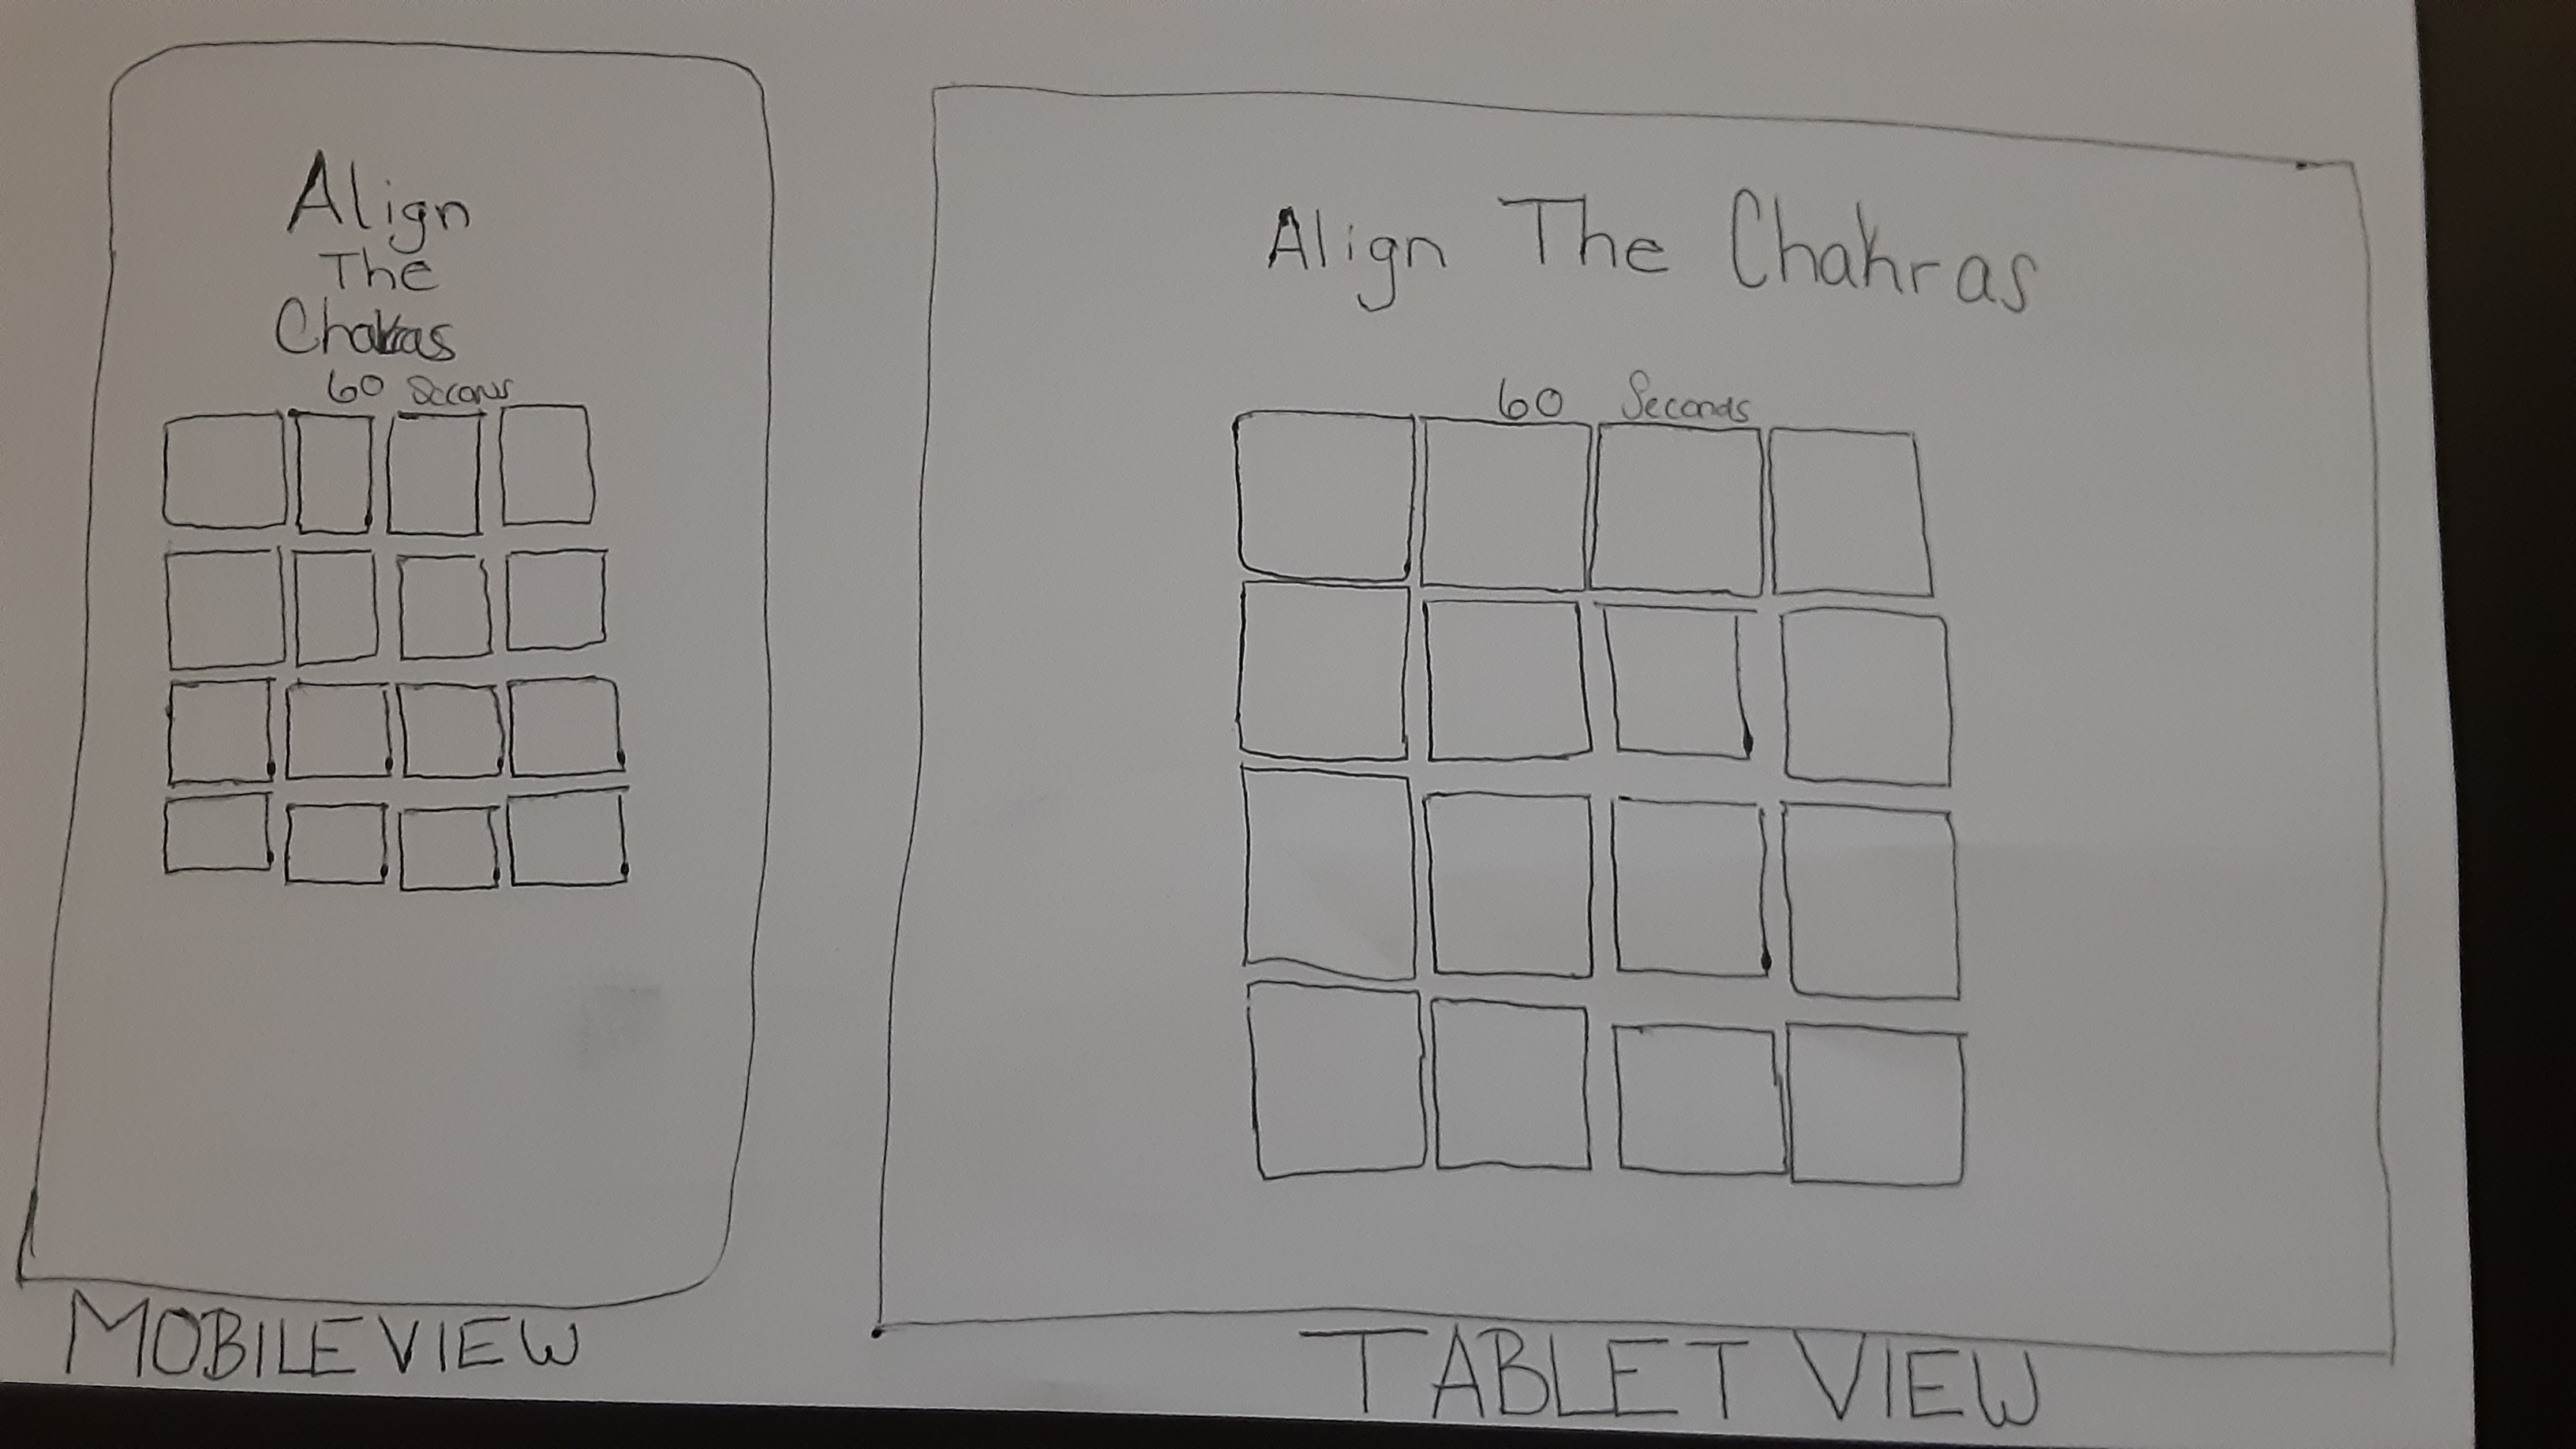 Align
The
Chakras
60 Seconds
MOBILE VIEW
Align The Chakras
60 Seconds
TABLET VIEW